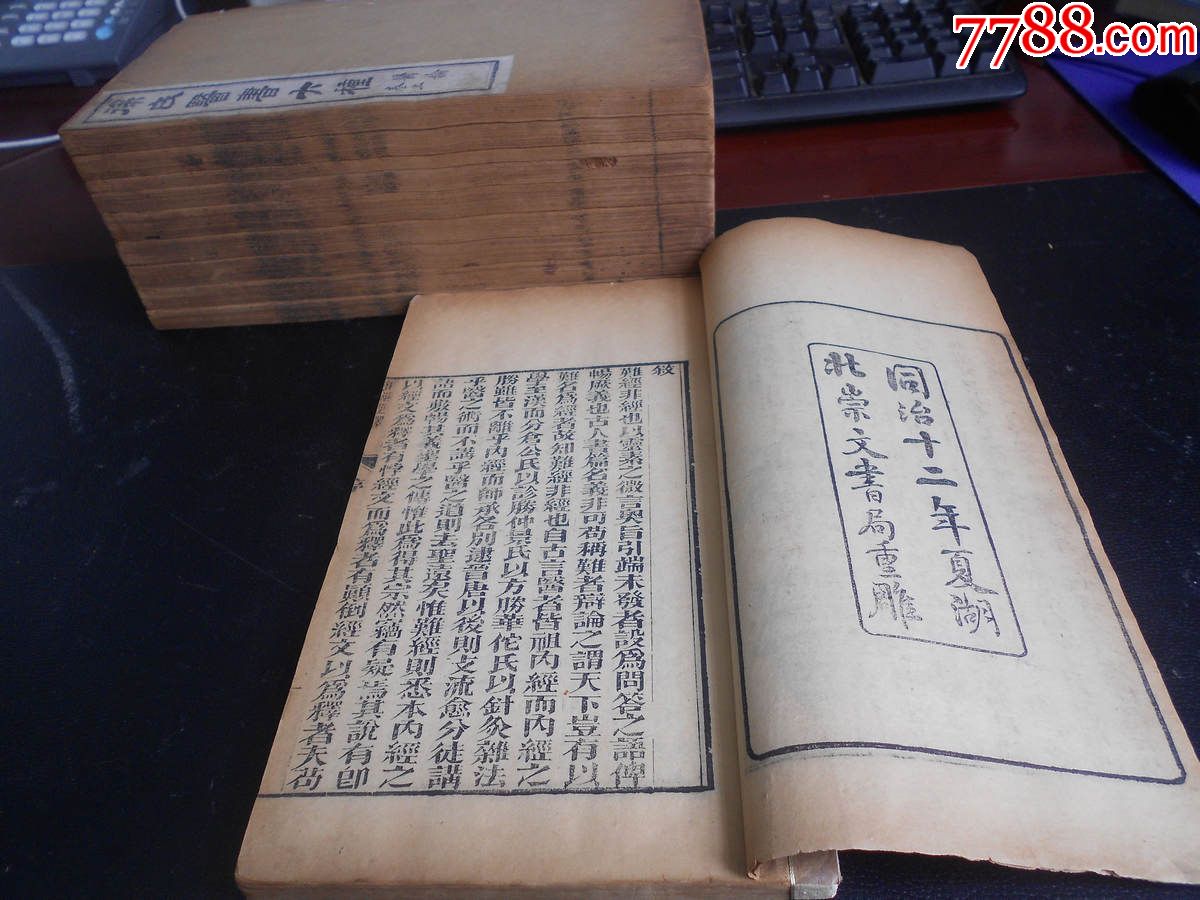 7788.com
醫書六種
同治十二年夏湖
北崇文書局重雕
敘
難經非經也以靈素之微言奧旨引端未發者設爲問答之語俾
暢厥義也古人書篇名義非可苟稱難者辯論之謂天下豈有以
難名爲經者故知難經非經也自古言醫者皆祖內經而內經之
學至漢而分倉公氏以診勝仲景氏以方勝華佗氏以針灸雜法
勝雖皆不離乎內經而師承各別逮晉唐以後則支流愈分徒講
乎醫之術而不講乎醫之道則去聖遠矣惟難經則悉本內經之
語而敷暢其義聖學之傳惟此爲得其宗然竊有疑焉其說有卽
以經文爲釋者有悖經文而爲釋者有顚倒經文以爲釋者夫苟